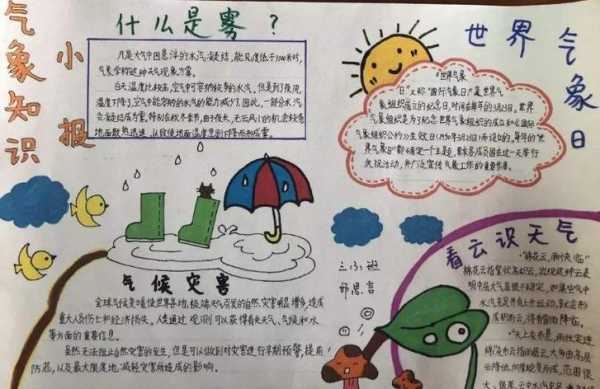 气象知识
小报
什么是雾？
凡是大气中因悬浮的水汽凝结，能见度低于1000米时，
气象学称这种天气现象为雾。
白天温度比较高，空气中可容纳较多的水汽，但是到了夜间，
温度下降了，空气中能容纳的水汽的能力减少了，因此，一部分水汽
会凝结成为雾。特别在秋冬季节，由于夜长，无云风小的机会较多
地面散热迅速，以致使地面温度急剧下降形成雾。
世界气象日
"世界气象
日"又称"国际气象日"，是世界气
象组织成立的纪念日，时间在每年的3月23日。世界
气象组织是为了纪念世界气象组织的成立和《国际
气象组织公约》生效日(1950年3月23日)而设的，每年的"世
界气象日"都确定一个主题，要求各成员国在这一天举行
庆祝活动，并广泛宣传气象工作的重要作用。
气候灾害
全球气候变暖使世界各地，极端天气频发的自然灾害明显增多，造成
重大人员伤亡和经济损失。人类通过观测可以获得有关天气、气候和水
等方面的重要信息。
虽然无法阻止自然灾害的发生，但是可以做到对灾害进行早期预警，提前
防范，以及最大限度地减轻灾害所造成的影响。
三(3)班
邢思言
看云识天气
"棉花云，雨快临"
棉花云指絮状高积云，出现这种云表
明中层大气层很不稳定，如果空气中
水汽充足并有上升运动，就会形
成积雨云，将有雷雨降临。